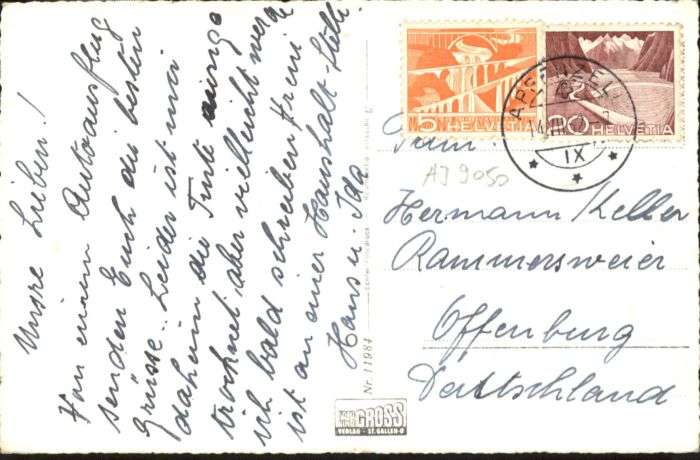 Unsre Lieben!
Von einem Autoausflug
senden Euch die besten
Grüsse. Leider ist mir
daheim die Tinte einge
trocknet aber vielleicht werde
ich bald schreiben. Freni
ist an einer Haushalt-Stelle.
Hans u. Ida
Nr. 11984
GROSS
VERLAG - ST. GALLEN-O
5 HELVETIA
20 HELVETIA
APPENZELL
IX
AJ 9050
Fam.
Hermann Keller
Rammersweier
Offenburg
Deutschland